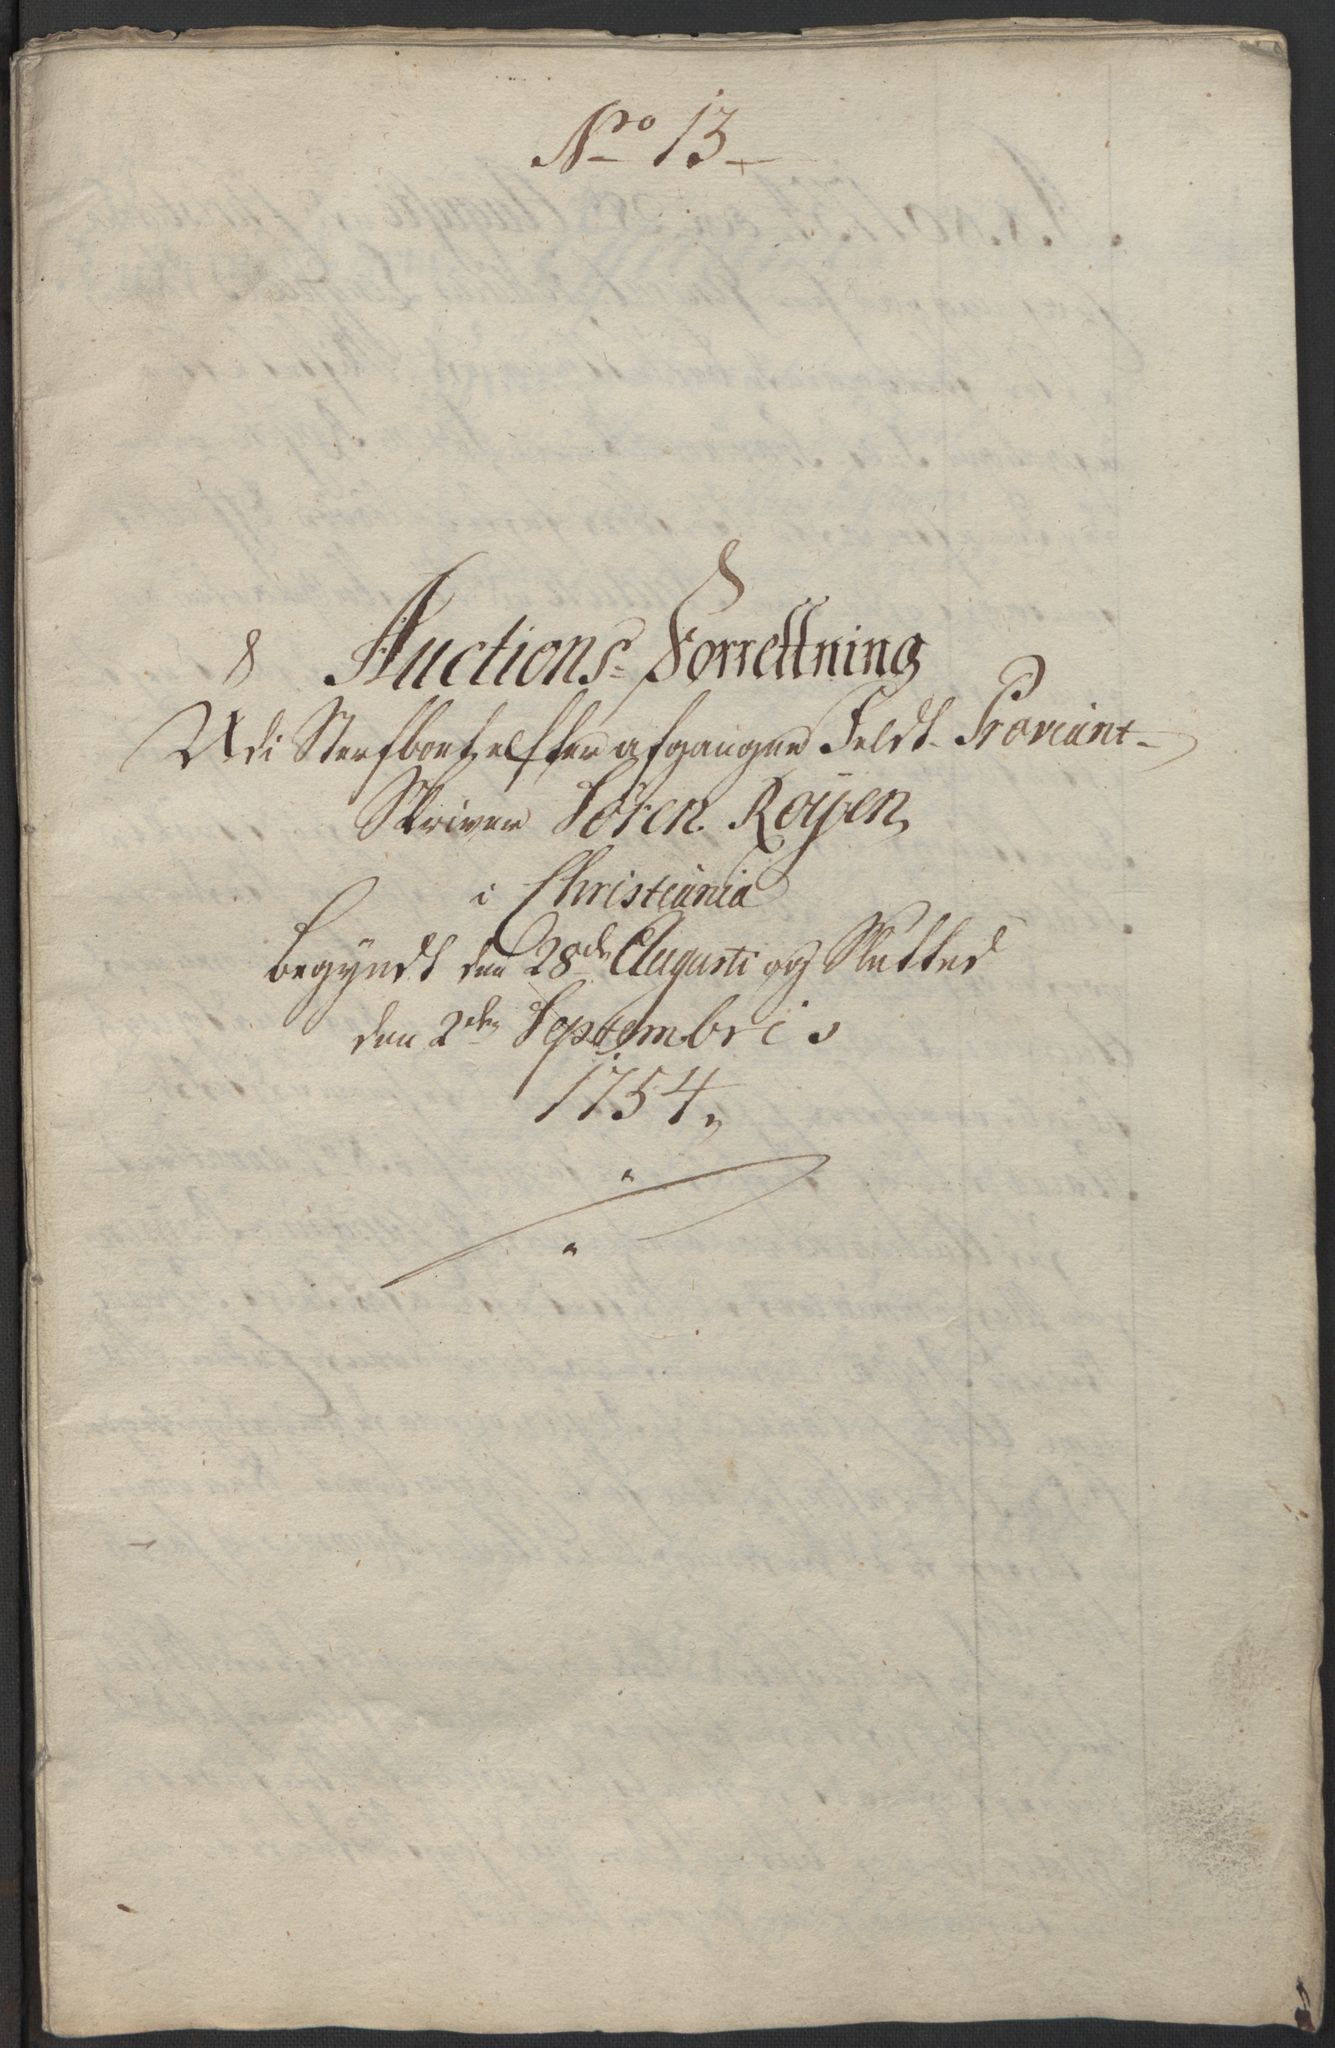 Nro 13
Auctions-Forrettning
Udi Sterfboet efter afgangne Feldt-Proviant-
Skriver Sören Royen
i Christiania
begyndt den 28de Augusti og Slutted
den 2den Septembris
1754